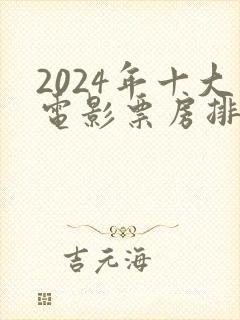 2024年十大
电影票房排
吉元海